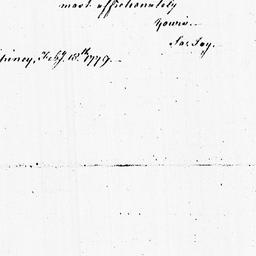 most affectionately
Yours.—
Jas. Jay.
Feby. 15th. 1779.